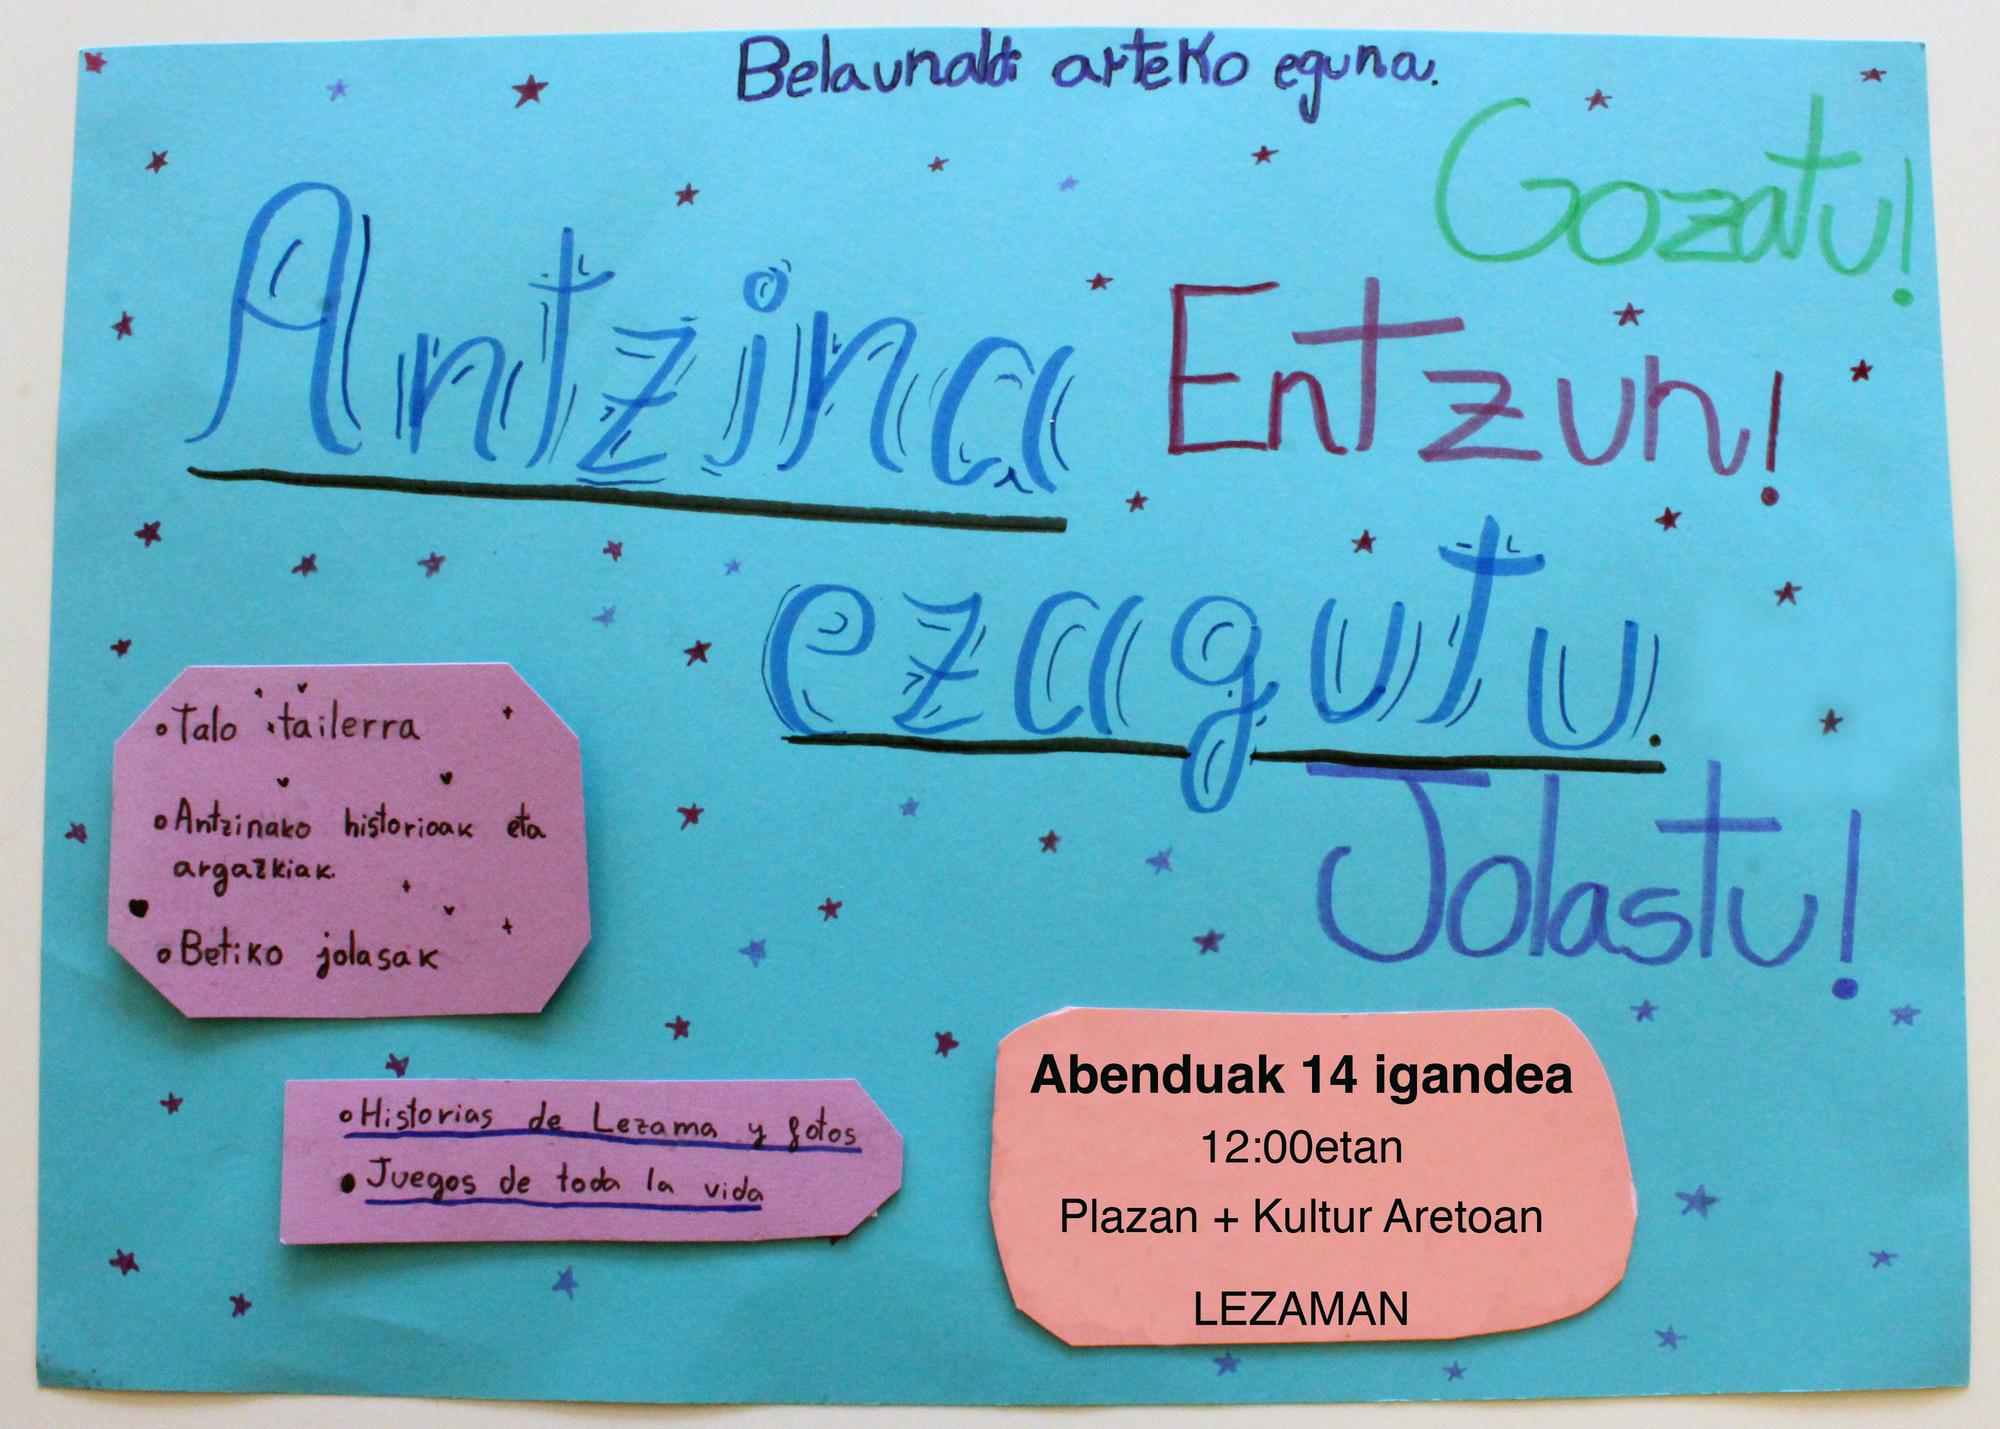 Belaunaldi arteko eguna.
Gozatu!
Antzina
Entzun!
ezagutu.
Jolastu!
• Talo tailerra
• Antzinako historioak eta
argazkiak.
• Betiko jolasak
• Historias de Lezama y fotos
• Juegos de toda la vida
Abenduak 14 igandea
12:00etan
Plazan + Kultur Aretoan
LEZAMAN